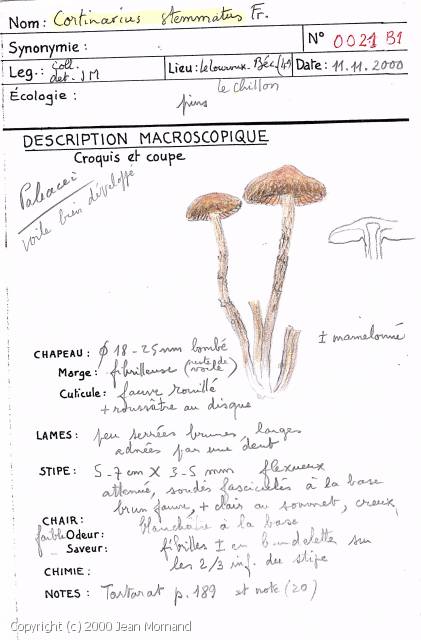 Nom: Cortinarius stemmatus Fr.
Synonymie :
N° 0021 B1
Leg.: Coll. det. JM
Lieu: le Louroux-Béc. (49) le chillon
Date: 11.11.2000
Écologie : pins
DESCRIPTION MACROSCOPIQUE
Croquis et coupe
Paleacei
voile bien développé
± mamelonné
CHAPEAU : ϕ 18-25 mm bombé
Marge : fibrilleuse (reste de voile)
Cuticule : fauve rouillé
+ roussâtre au disque
LAMES : peu serrées brunes larges
adnées par une dent
STIPE : 5-7 cm X 3-5 mm flexueux
atténué, soudés fasciculés à la base
brun fauve, + clair au sommet, creux,
CHAIR : blanchâtre à la base
faible Odeur: fibrilles ± en bandelettes sur
" Saveur: les 2/3 inf. du stipe
CHIMIE :
NOTES : Tartarat p. 189 et note (20)
Copyright (c) 2000 Jean Mornand